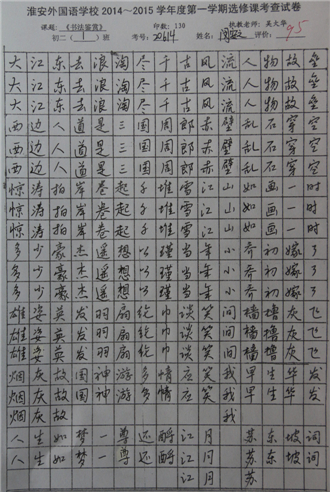 淮安外国语学校2014～2015学年度第一学期选修课考查试卷
课题：《书法鉴赏》 印数：130 执教老师：吴大华
初二（ ）班 考号：20614 姓名： 评价：95
大江东去浪淘尽千古风流人物故垒
大江东去浪淘尽千古风流人物故垒
大江东去浪淘尽千古风流人物故垒
西边人道是三国周郎赤壁乱石穿空
西边人道是三国周郎赤壁乱石穿空
西边人道是三国周郎赤壁乱石穿空
惊涛拍岸卷起千堆雪江山如画一时
惊涛拍岸卷起千堆雪江山如画一时
惊涛拍岸卷起千堆雪江山如画一时
多少豪杰遥想公瑾当年小乔初嫁了
多少豪杰遥想公瑾当年小乔初嫁了
多少豪杰遥想公瑾当年小乔初嫁了
雄姿英发羽扇纶巾谈笑间樯橹灰飞
雄姿英发羽扇纶巾谈笑间樯橹灰飞
雄姿英发羽扇纶巾谈笑间樯橹灰飞
烟灰故国神游多情应笑我早生华发
烟灰故国神游多情应笑我早生华发
烟灰故 我
人生如梦一尊还酹江月 苏东坡词
人生如梦一尊还酹江月 苏东坡词
江月 苏